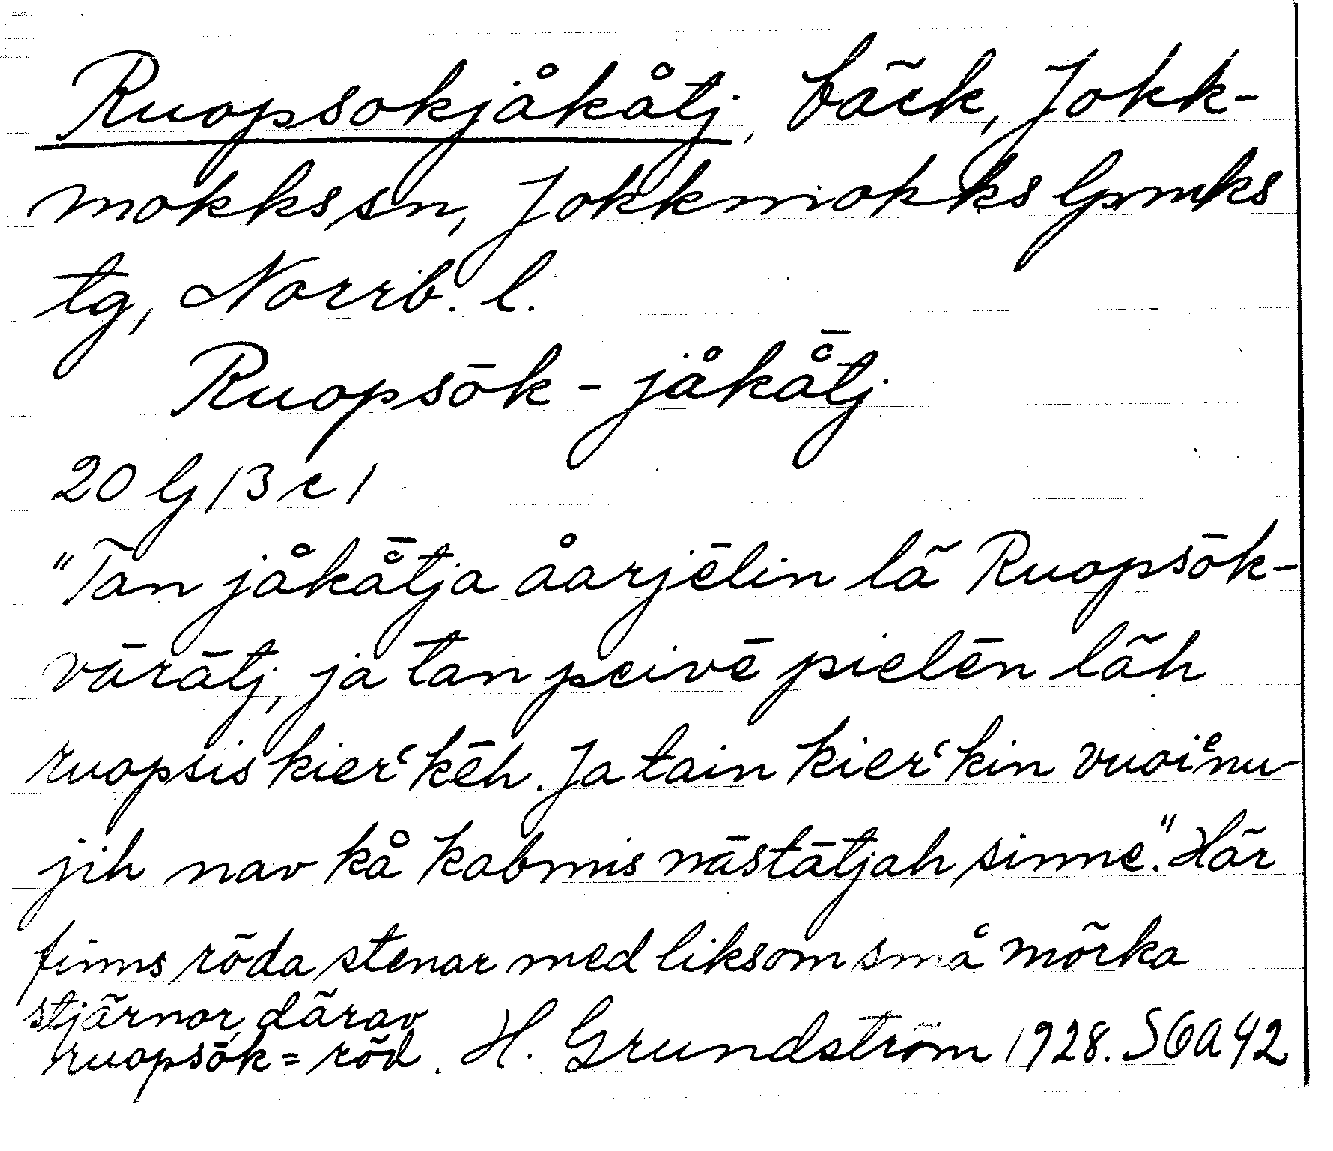 Ruopsokjåkåtj, bäck, Jokk-
mokks sn, Jokkmokks lpmks
tg, Norrb. l.
Ruopsōk - jåkå̄tj
20 lj /3 c/
"Tan jåkå̄tja åarjēlin lä Ruopsōk-
vārātj, ja tan peivē pielēn läh
ruopsis kierʿkēh. Ja tain kierʿkin vuoi̊nu-
jih nav kå kabmis nāstātjah sinne". Här
finns röda stenar med liksom små mörka
stjärnor, därav
ruopsōk = röd. H. Grundström 1928. S6a42